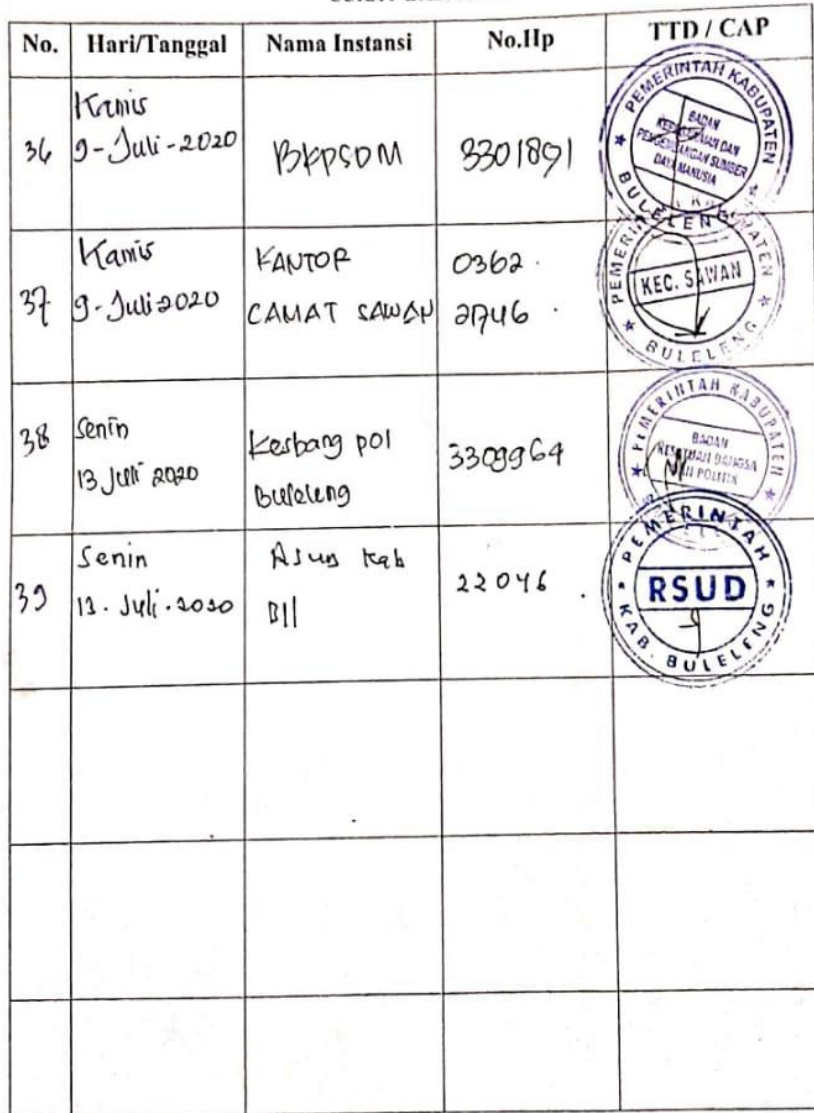 No. Hari/Tanggal Nama Instansi No.Hp TTD / CAP
36 Kamis
9-Juli-2020 BKPSDM 3301891
PEMERINTAH KABUPATEN
BADAN
KEPEGAWAIAN DAN
PENGEMBANGAN SUMBER
DAYA MANUSIA
BULELENG
37 Kamis
9-Juli 2020 KANTOR
CAMAT SAWAN 0362
21746
KEC. SAWAN
BULELENG
38 Senin
13 Juli 2020 Kesbang pol
Buleleng 3309964
PEMERINTAH KABUPATEN
BADAN
KESATUAN BANGSA
DAN POLITIK
39 Senin
13. Juli. 2020 Kab
Bll 22046
PEMERINTAH
RSUD
KAB. BULELENG